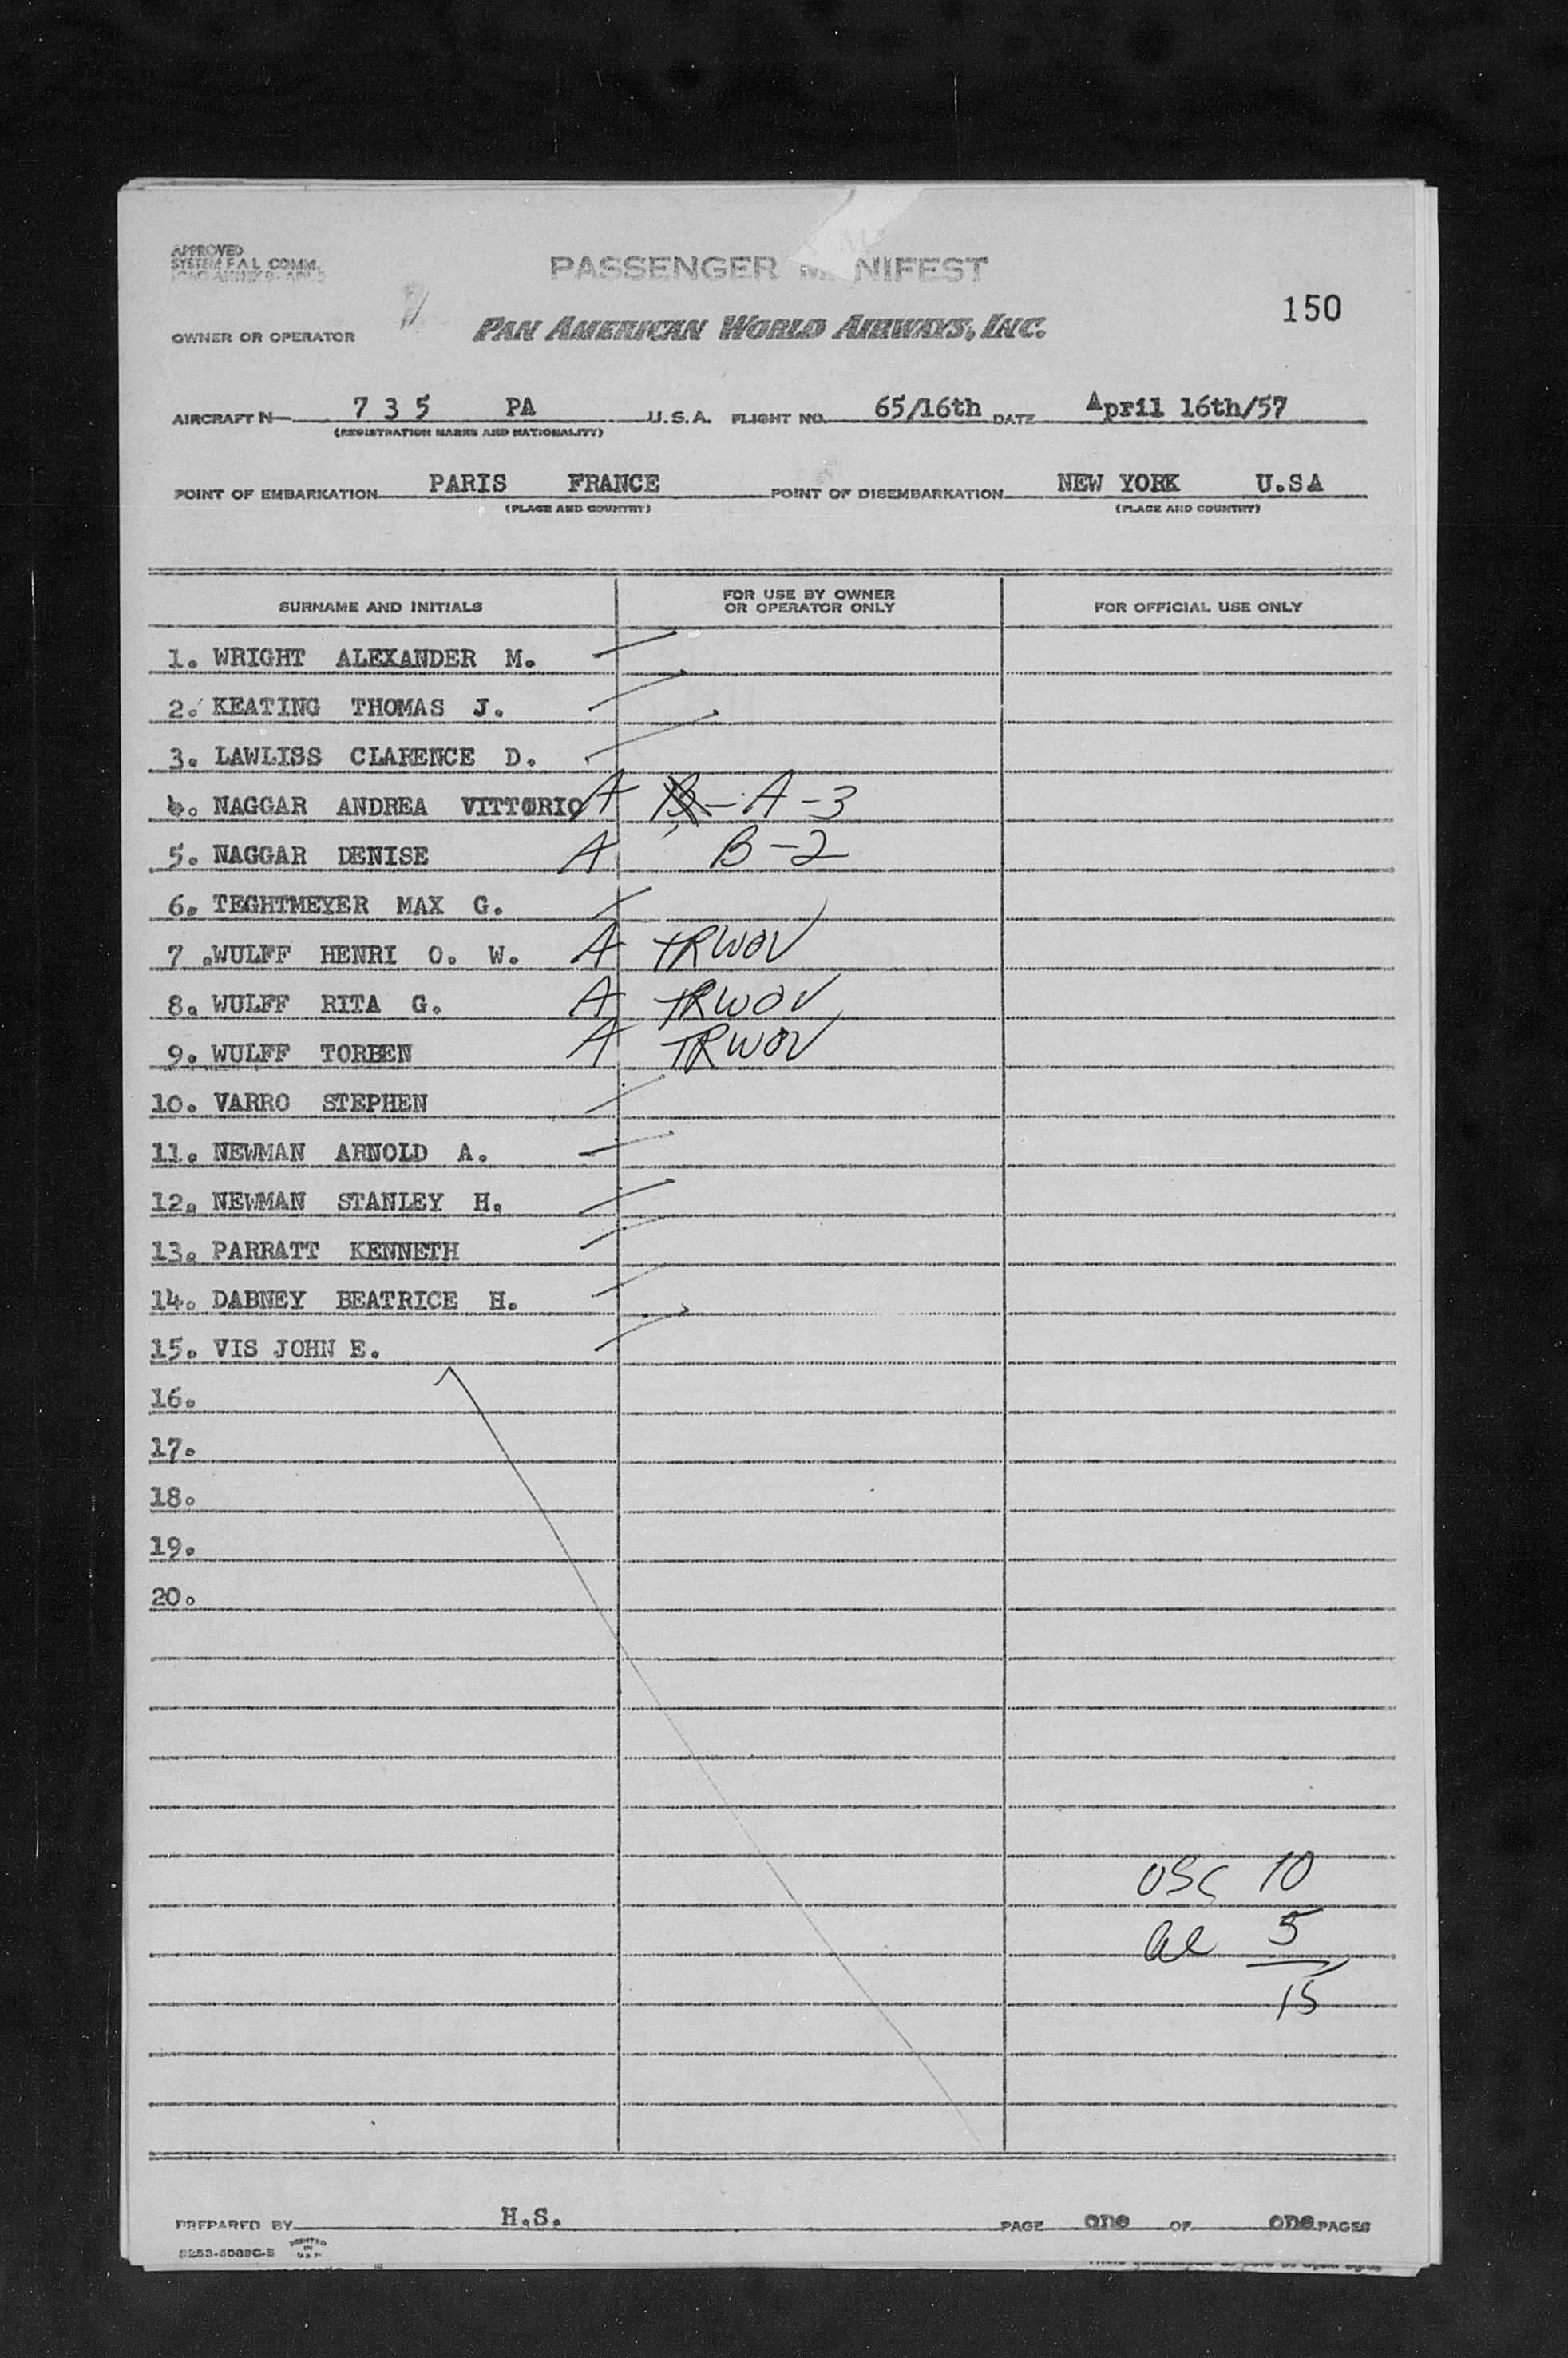 APPROVED
SYSTEM F A L COMM.
PASSENGER M NIFEST
150
OWNER OR OPERATOR PAN AMERICAN WORLD AIRWAYS, INC.
AIRCRAFT N 7 3 5 PA U.S.A. FLIGHT NO. 65/16th DATE April 16th/57
(REGISTRATION MARKS AND NATIONALITY)
POINT OF EMBARKATION PARIS FRANCE POINT OF DISEMBARKATION NEW YORK U.SA
(PLACE AND COUNTRY) (PLACE AND COUNTRY)
SURNAME AND INITIALS FOR USE BY OWNER OR OPERATOR ONLY FOR OFFICIAL USE ONLY
1. WRIGHT ALEXANDER M.
2. KEATING THOMAS J.
3. LAWLISS CLARENCE D.
4. NAGGAR ANDREA VITTORIO A B - A-3
5. NAGGAR DENISE A B-2
6. TEGHTMEYER MAX G.
7. WULFF HENRI O. W. A TRWOV
8. WULFF RITA G. A TRWOV
9. WULFF TORBEN A TRWOV
10. VARRO STEPHEN
11. NEWMAN ARNOLD A.
12. NEWMAN STANLEY H.
13. PARRATT KENNETH
14. DABNEY BEATRICE H.
15. VIS JOHN E.
16.
17.
18.
19.
20.
USC 10
al 5
15
PREPARED BY H.S. PAGE one OF one PAGES
PRINTED IN U.S.A.